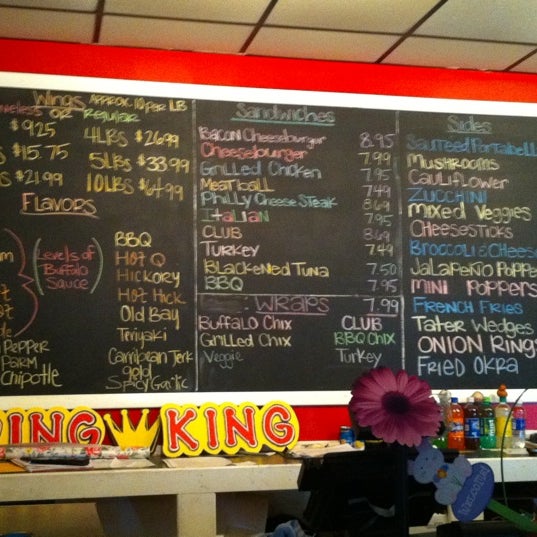 Wings Approx. 10 per lb
or Regular
$9.25 4 lbs $26.99
$15.75 5 lbs $33.99
$21.99 10 lbs $64.99
Flavors
Levels of
Buffalo
Sauce
BBQ
Hot Q
Hickory
Hot Hick
Old Bay
Teriyaki
Carribean Jerk
gold
Spicy Garlic
Pepper
Parm
Chipotle
Sandwiches
Bacon Cheeseburger 8.95
Cheeseburger 7.99
Grilled Chicken 7.95
Meatball 7.49
Philly Cheese Steak 8.69
Italian 7.95
Club 8.69
Turkey 7.49
Blackened Tuna 7.50
BBQ 7.95
Wraps 7.99
Buffalo Chix Club
Grilled Chix BBQ Chix
Veggie Turkey
Sides
Sauteed Portabell
Mushrooms
Cauliflower
Zucchini
Mixed Veggies
Cheesesticks
Broccoli & Cheese
Jalapeno Poppe
Mini Poppers
French Fries
Tater Wedges
Onion Rings
Fried Okra
KING